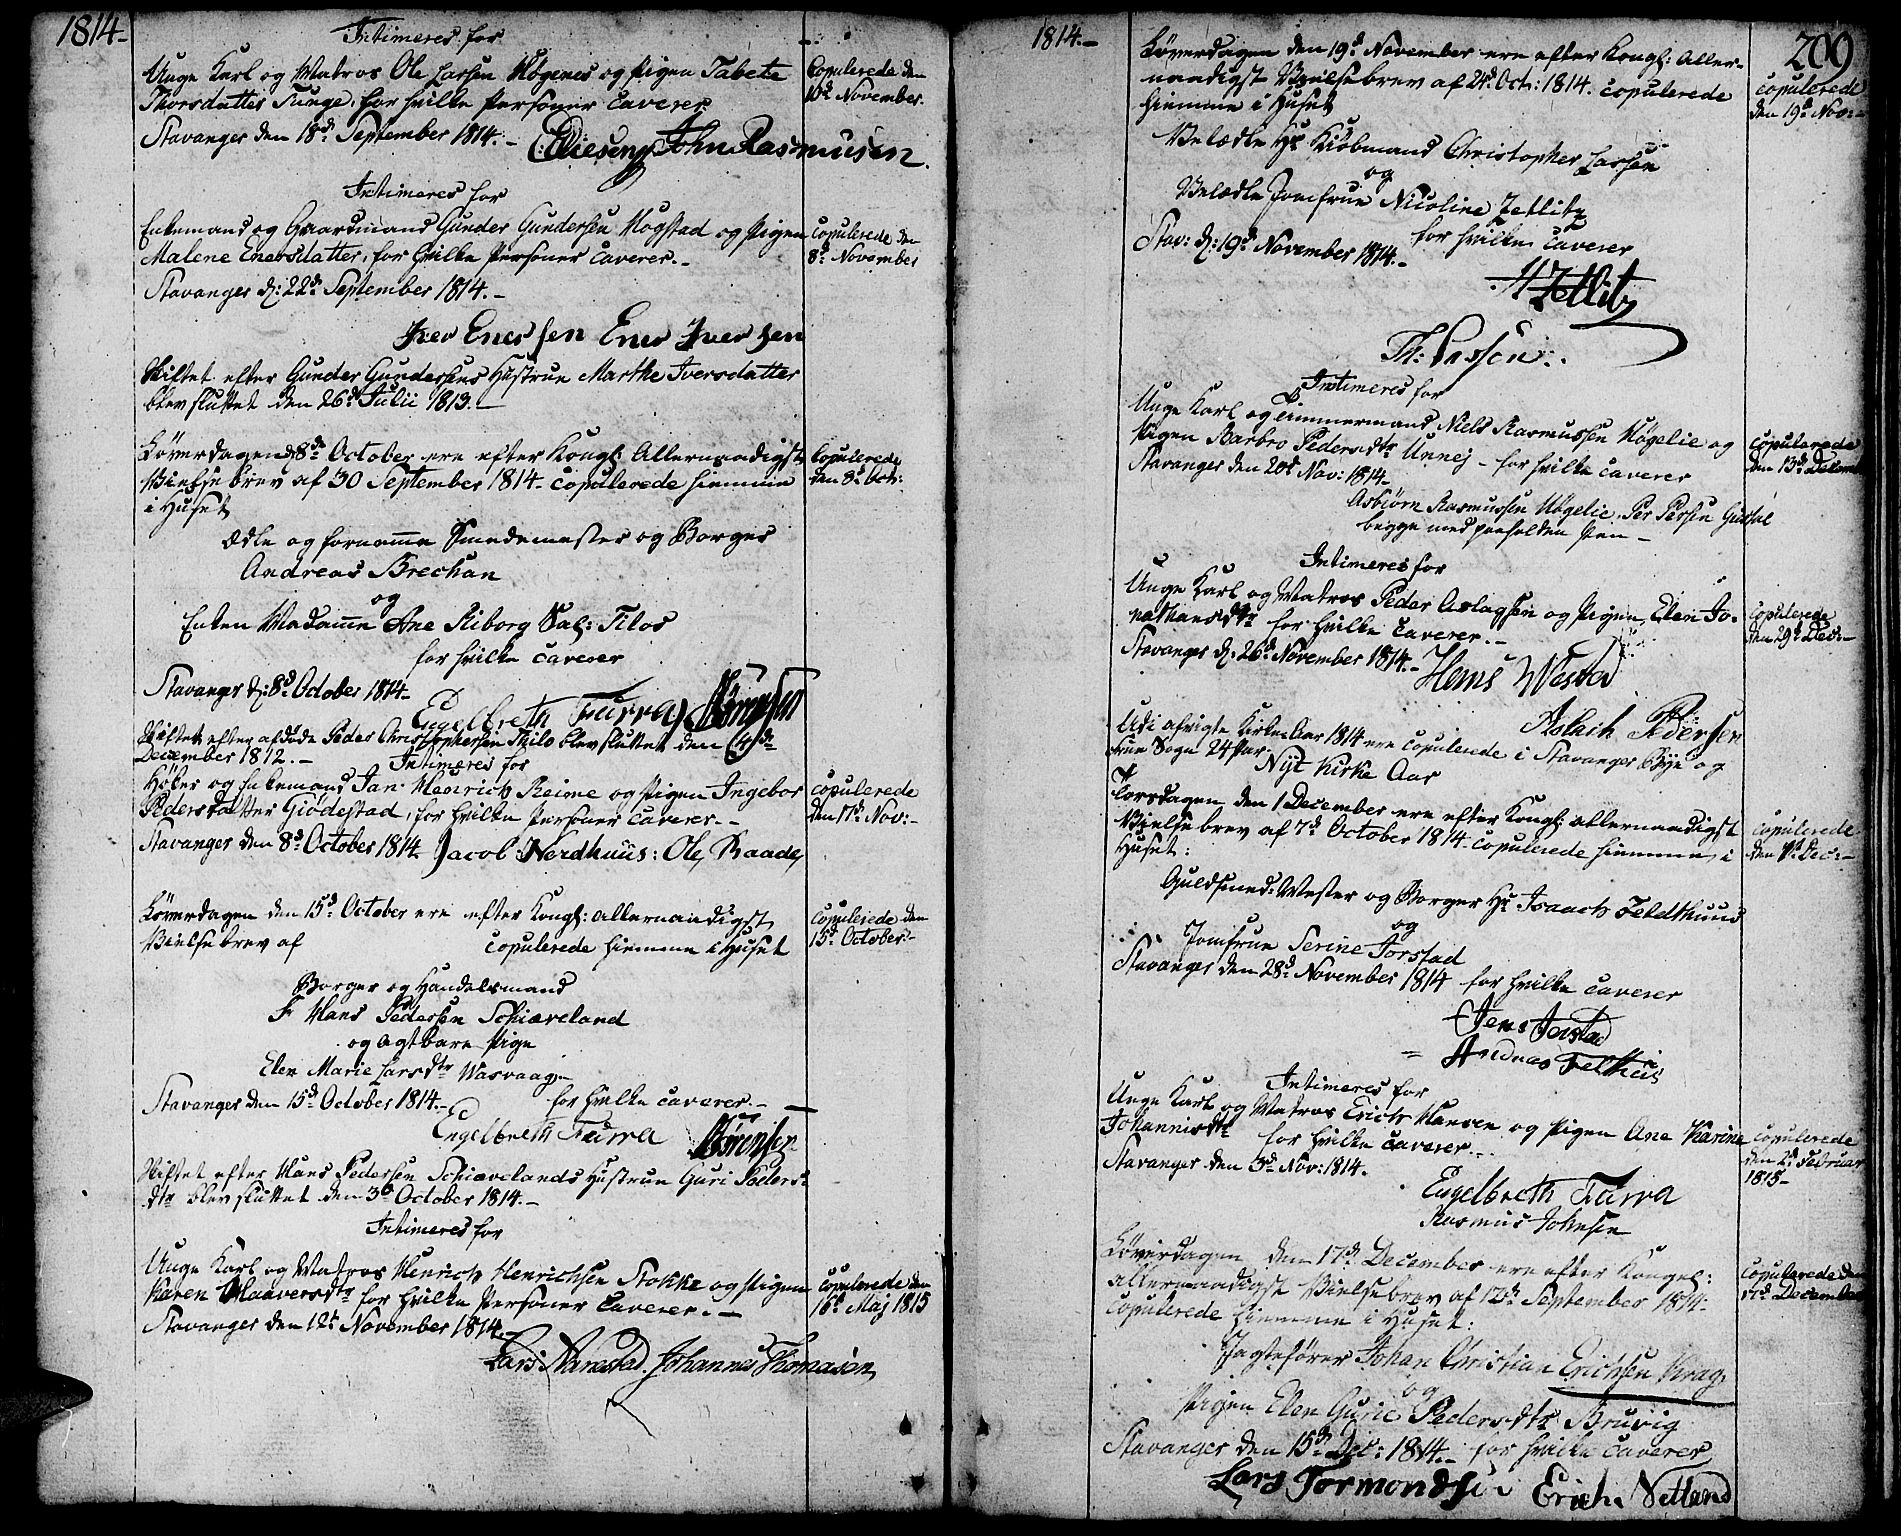 1814.-
Intimeres for
Unge Karl og Matros Ole Larsen Høgenes og Pigen Tabete
Thorsdatter Tunge, for hvilke Personer caverer
Stavanger den 18de September 1814.-
John Rasmussen.
Copulerede den
10de November.
Intimeres for
Enkemand og Gaardmand Gunder Gundersen Hogstad og Pigen
Malene Enersdatter, for hvilke Personer caverer.-
Stavanger d: 22de September 1814.-
Iver Enersen Ener Iversen
copulerede den
8de November
Skiftet efter Gunder Gundersens Hustrue Marthe Iversdatter
blev sluttet den 26de Julii 1813.-
Løverdagen d 8de October ere efter Kongl: Allernaadigst
Vielsebrev af 30 September 1814 - copulerede hiemme
i Huset
Ædle og fornemme Smedemester og Borger
Andreas Brechan
og
Enken Madamme Ane Riborg Sal: Tilos
for hvilke caverer
Stavanger d: 8de October 1814-
Engelbreth Furra Sørensen
Copulerede
den 8de Oct:
Skiftet efter afdøde Peder Christophersen Thilo blev sluttet den 4de
December 1812.-
Intimeres for
Høker og Enkemand Jan Henrich Reime og Pigen Ingebor
Pedersdatter Giødestad, for hvilke Personer caverer.-
Stavanger den 8de October 1814
Jacob Nerdhuus: Ole Raade
copulerede
den 17de Nov:-
Løverdagen den 15de October ere efter Kongl: allernaadigst
Vielsebrev af copulerede hiemme i Huset
Borger og Handelsmand
Hr Hans Pedersen Schiæveland
og agtbare Pige
Elen Marie Larsdtr Wasvaag
for hvilke caverer.-
Stavanger den 15de October 1814.-
Engelbreth Furra Sørensen
copulerede den
15de October:-
Skiftet efter Hans Pedersen Schiævelands Hustrue Guri Peders-
dtr blev sluttet den 3de October 1814.-
Intimeres for
Unge Karl og Matros Henrich Henrichsen Stokke og Pigen
Karen Haaversdtr for hvilke Personer caverer.-
Stavanger den 12te November 1814.
Lars Aarrestad. Johannes Thomasen
copulerede den
16de Maj 1815
1814.-
209
Løverdagen den 19de November ere efter Kongl: Aller-
naadigst Vielsebrev af 24de Oct: 1814. copulerede
hiemme i Huset
Velædle Hr Kiøbmand Christopher Larsen
og
Velædle Jomfrue Nicoline Zetlitz
for hvilke caverer
Stav: d: 19de November 1814.-
Zetlitz
Th: Larsen.
copulerede
den 19de Nov:-
Intimeres for
Unge Karl og Timmermand Niels Rasmussen Høgelie og
Pigen Barbro Pedersdtr Unnej - for hvilke caverer
Stavanger den 20de Nov: 1814.-
Asbiørn Rasmussen Høgelie. Per Persen
begge med paaholden Pen -
copulerede
den 13de Decemb
Intimeres for
Unge Karl og Matros Peder Aslagsen og Pigen Elen Jo-
nathansdtr for hvilke caverer.-
Stavanger d: 26de November 1814.-
Aslach Pedersen
copulerede
den 29de Dec:-
Udi afvigte Kirke Aar 1814 ere copulerede i Stavanger Bye og
Frue Sogn 24 Par.
Nyt Kirke Aar
Torsdagen den 1 December ere efter Kongl: allernaadigst
Vielsebrev af 7de October 1814 copulerede hiemme i
Huset:
Guldsmed-Mester og Borger Hr Isaach Feldthuus
og
Jomfrue Serine Jorstad
Stavanger den 28de November 1814 for hvilke caverer
Jens Jorstad
Andreas Felthus
copulerede
den 1ste Dec:-
Intimeres for
Unge Karl og Matros Erich Hansen og Pigen Ane Karine
Johannisdtr for hvilke caverer.-
Stavanger den 3de Nov: 1814.
Engelbreth Furra
Rasmus Johnsen
copulerede
den 2de Februar
1815-
Løverdagen den 17de December ere efter Kongel:
allernaadigst Vielsebrev af 17de September 1814-
copulerede hiemme i Huset:
Jagtefører Johan Christian Erichsen Krag
og
Pigen Elen Gurie Pedersdtr Bruvig
Stavanger den 15de Dec: 1814.- for hvilke caverer
Lars Tormondsen Erich Netland
copulerede den
17de December